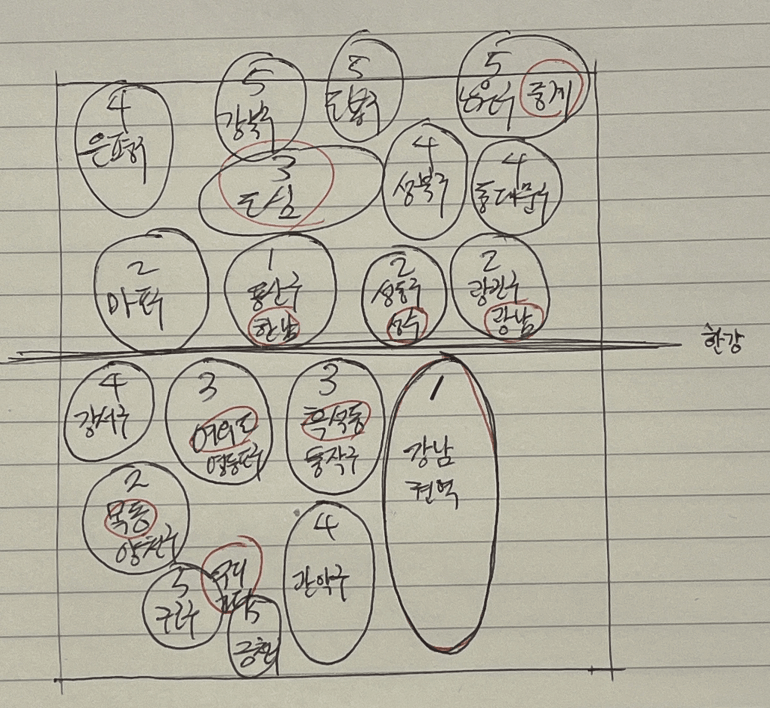 4
은평구
5
강북구
5
도봉구
5
노원구 중계
3
도심
4
성북구
4
동대문구
2
마포구
1
용산구
한남
2
성동구
성수
2
광진구
광남
한강
4
강서구
3
여의도
영등포구
3
흑석동
동작구
1
강남
권역
2
목동
양천구
4
관악구
5
구로구
5
금천